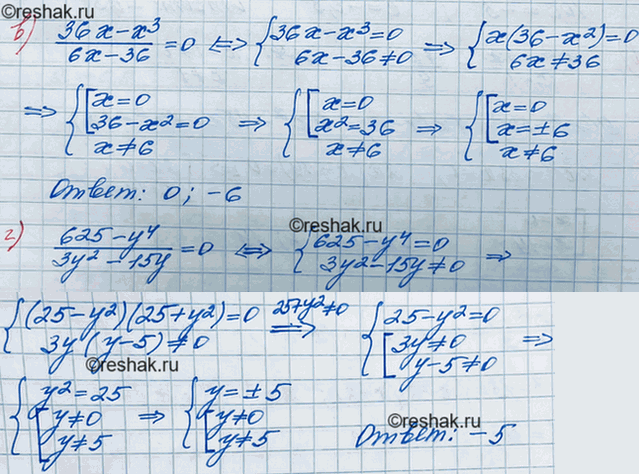 в) (36x-x³)/(6x-36) = 0 ⟺ { 36x-x³=0 ; 6x-36≠0 ⟹ { x(36-x²)=0 ; 6x≠36
⟹ { [ x=0 ; 36-x²=0 ; x≠6 ⟹ { [ x=0 ; x²=36 ; x≠6 ⟹ { [ x=0 ; x=±6 ; x≠6
Ответ: 0; -6
©reshak.ru
г) (625-y⁴)/(3y²-15y) = 0 ⟺ { 625-y⁴=0 ; 3y²-15y≠0 ⟹
{ (25-y²)(25+y²)=0 ; 3y(y-5)≠0 25+y²≠0 ⟹ { 25-y²=0 ; [ 3y≠0 ; y-5≠0 ⟹
©reshak.ru
{ y²=25 ; [ y≠0 ; y≠5 ⟹ { y=±5 ; [ y≠0 ; y≠5 Ответ: -5
©reshak.ru